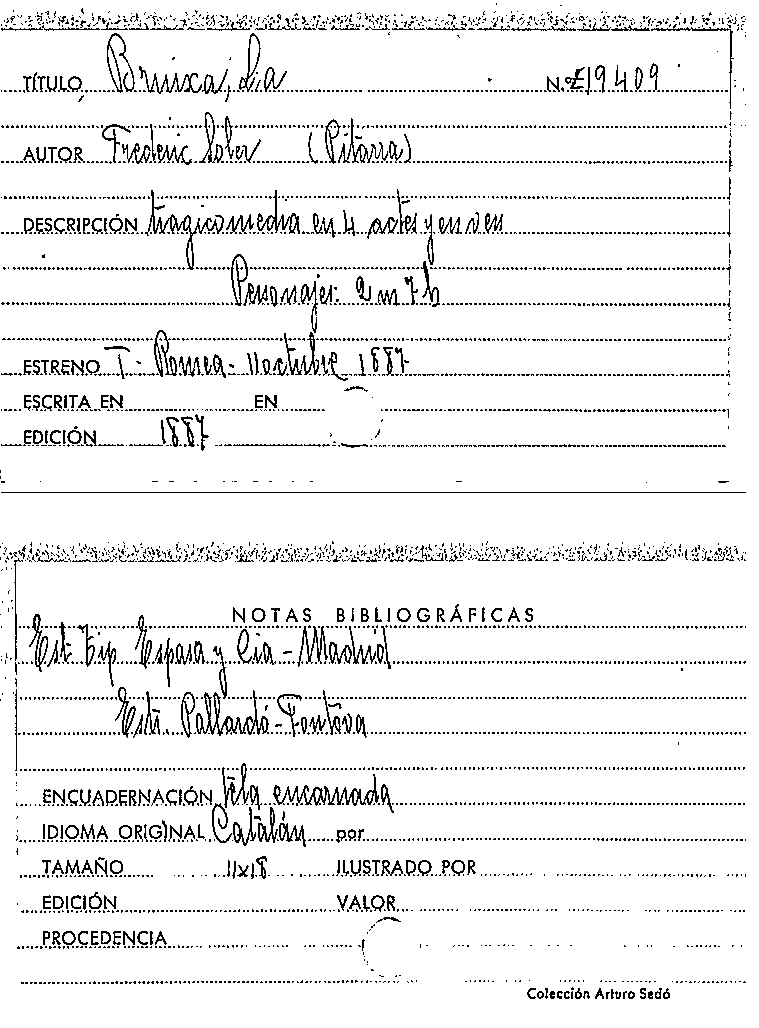 TÍTULO Bruixa, La N.º 19409
AUTOR Frederic Soler (Pitarra)
DESCRIPCIÓN tragicomedia en 4 actes y en vers
Personajes: 2 m 7 h
ESTRENO T- Romea- 11 octubre 1887
ESCRITA EN EN
EDICIÓN 1887
NOTAS BIBLIOGRÁFICAS
Est. Tip. Espasa y Cia - Madrid
Estr. Pallardó-Fontova
ENCUADERNACIÓN tela encarnada
IDIOMA ORIGINAL Catalán por
TAMAÑO 11x18 ILUSTRADO POR
EDICIÓN VALOR
PROCEDENCIA
Colección Arturo Sedó